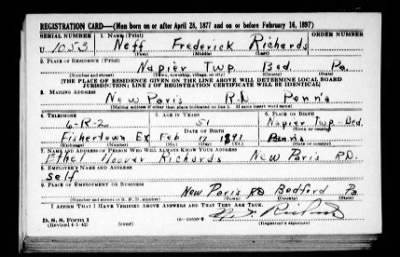 REGISTRATION CARD—(Men born on or after April 28, 1877 and on or before February 16, 1897)
SERIAL NUMBER 1. NAME (Print) ORDER NUMBER
U 1053 Neff Frederick Richards
(First) (Middle) (Last)
2. PLACE OF RESIDENCE (Print)
Napier Twp. Bed. Pa.
(Number and street) (Town, township, village, or city) (County) (State)
[THE PLACE OF RESIDENCE GIVEN ON THE LINE ABOVE WILL DETERMINE LOCAL BOARD
JURISDICTION; LINE 2 OF REGISTRATION CERTIFICATE WILL BE IDENTICAL]
3. MAILING ADDRESS
New Paris R.D. Penn'a
[Mailing address if other than place indicated on line 2. If same insert word same]
4. TELEPHONE 5. AGE IN YEARS 6. PLACE OF BIRTH
6-R-2 51 Napier Twp-Bed.
DATE OF BIRTH
Fishertown Ex Feb 17 1891 Penn'a
7. NAME AND ADDRESS OF PERSON WHO WILL ALWAYS KNOW YOUR ADDRESS
Ethel Hoover Richards New Paris R.D.
8. EMPLOYER'S NAME AND ADDRESS
Self
9. PLACE OF EMPLOYMENT OR BUSINESS
New Paris RD Bedford Pa
(Number and street or R. F. D. number) (Town) (County) (State)
I AFFIRM THAT I HAVE VERIFIED ABOVE ANSWERS AND THAT THEY ARE TRUE.
D. S. S. Form 1
(Revised 4-1-42) (over) (Registrant's signature)